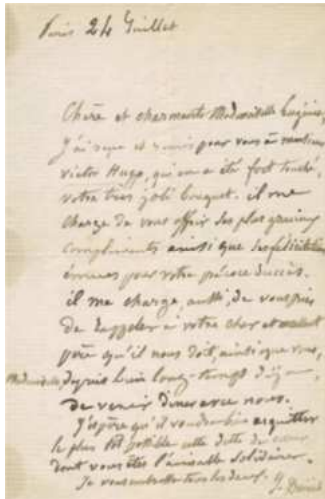 Paris 24 Juillet
Chère et charmante Mademoiselle Eugénie,
J'ai reçu et remis pour vous à monsieur
victor Hugo, qui en a été fort touché,
votre très joli bouquet. il me
charge de vous offrir ses plus gracieux
compliments ainsi que ses félicitations
émues pour votre précoce succès.
il me charge, aussi, de vous prier
de rappeler à votre cher et excellent
père qu'il nous doit, ainsi que vous,
Mademoiselle, depuis bien long-temps déja,
de venir diner avec nous.
J'espère qu'il voudra bien acquitter
le plus tôt possible cette dette de cœur
dont vous êtes l'aimable solidaire.
Je vous embrasse tous les deux. J. Drouet